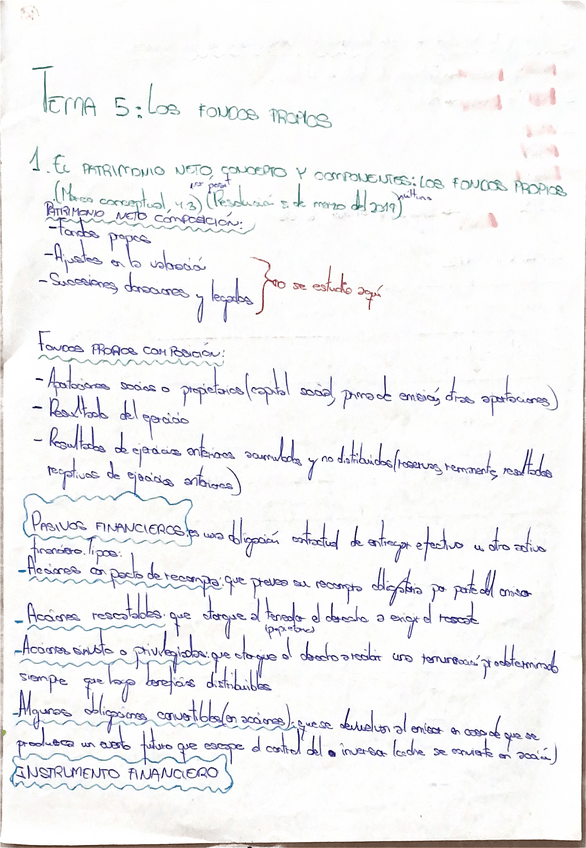 TEMA 5: LOS FONDOS PROPIOS
1. EL PATRIMONIO NETO, CONCEPTO Y COMPONENTES: LOS FONDOS PROPIOS
(Marco conceptual, 4.3) (Resolución 5 de marzo del 2019)
PATRIMONIO NETO COMPOSICIÓN:
-Fondos propios
-Ajustes en la valoración
-Sucesiones, donaciones y legados
no se estudia aquí
FONDOS PROPIOS COMPOSICIÓN:
-Aportaciones socios o propietarios (capital social, prima de emisión, otras aportaciones)
-Resultado del ejercicio
-Resultados de ejercicios anteriores acumulados y no distribuidos (reservas, remanente, resultados
negativos de ejercicios anteriores)
PASIVOS FINANCIEROS: es una obligación contractual de entregar efectivo u otro activo
financiero. Tipos:
-Acciones con pacto de recompra: que prevea su recompra obligatoria por parte del emisor
-Acciones rescatables: que otorgue al tenedor el derecho a exigir el rescate
(propietario)
-Acciones sin voto o privilegiadas: que otorgue el derecho a recibir una remuneración predeterminada
siempre que haya beneficios distribuibles
-Algunas obligaciones convertibles (en acciones): que se devuelvan al emisor en caso de que se
produzca un evento futuro que escape el control del inversor (coche se convierte en acción)
INSTRUMENTO FINANCIERO